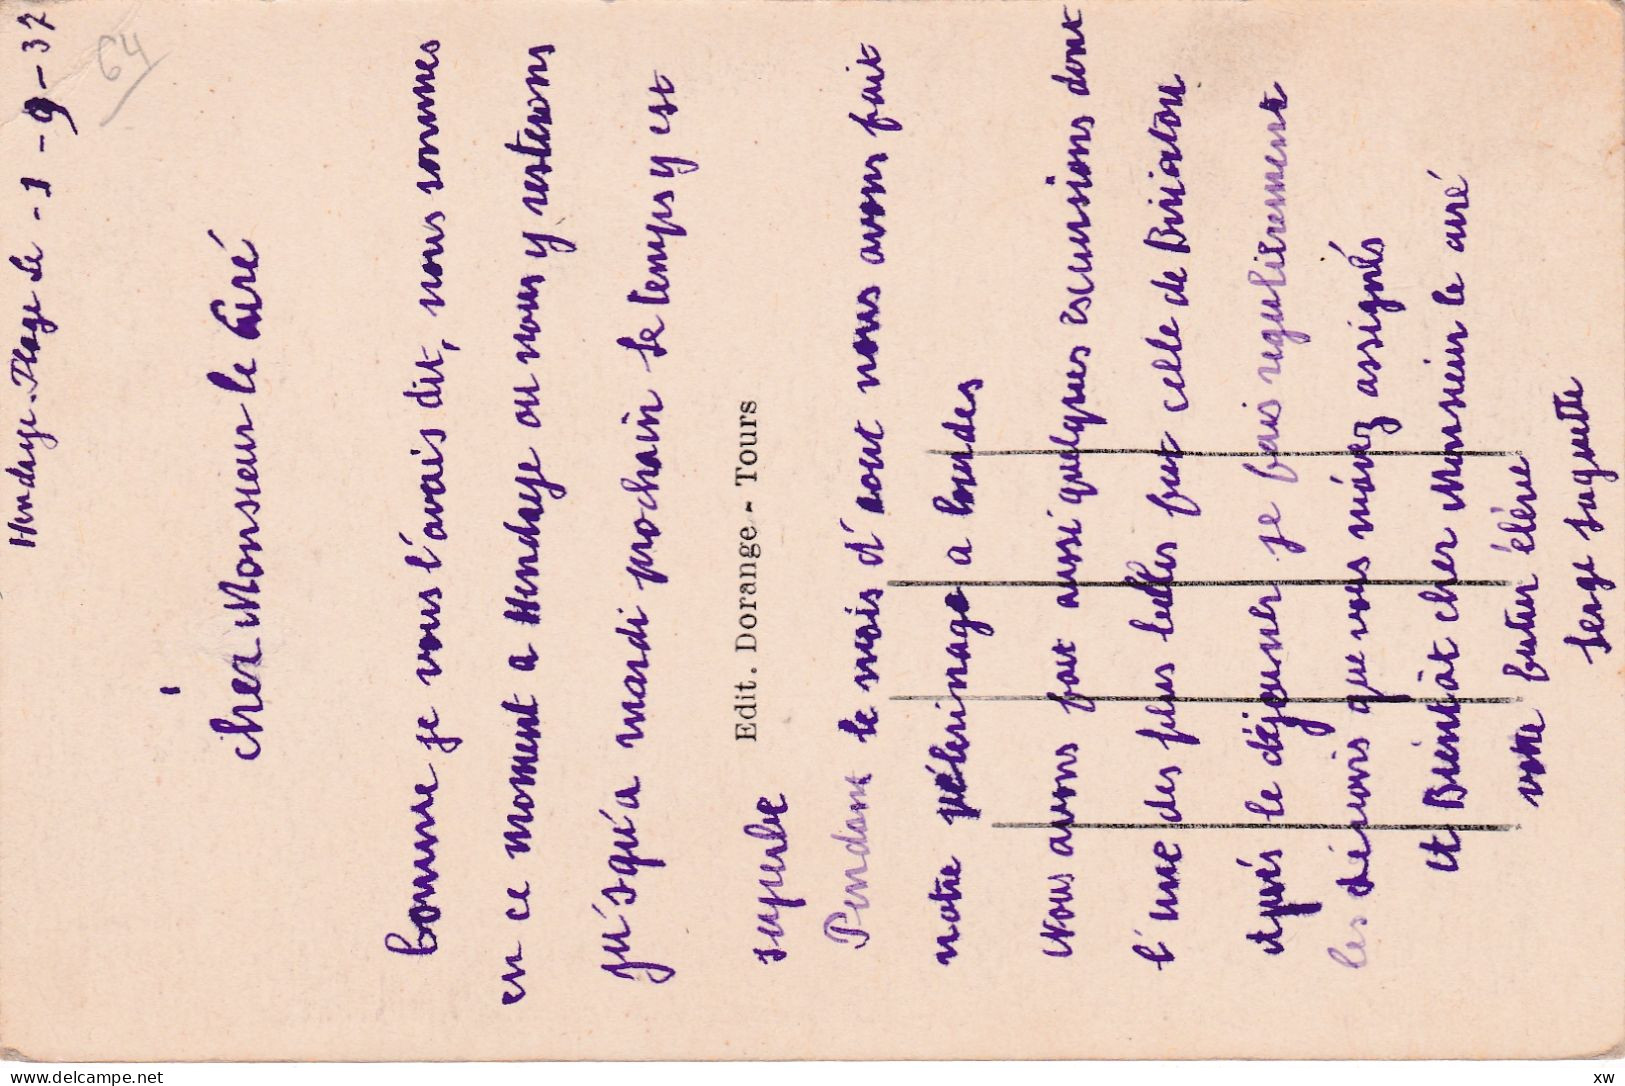 Hendaye. Plage le - 1 - 9 - 37
64
cher Monsieur le Curé
Comme je vous l'avais dit, nous sommes
en ce moment a Hendaye ou nous y resterons
ju'squ'a mardi prochain Le temps y est
superbe
Edit. Dorange - Tours
Pendant le mois d'aout nous avons fait
notre pélerinage a lourdes
Nous avons fait aussi quelques escursions dont
l'une des plus belles fut celle de Biriatou
Après le déjeuner je fais regulièrement
les devoirs que vous m'avez assignés
et Bientôt cher Monsieur le curé
votre futur élève
Serge
delcampe.net
xw